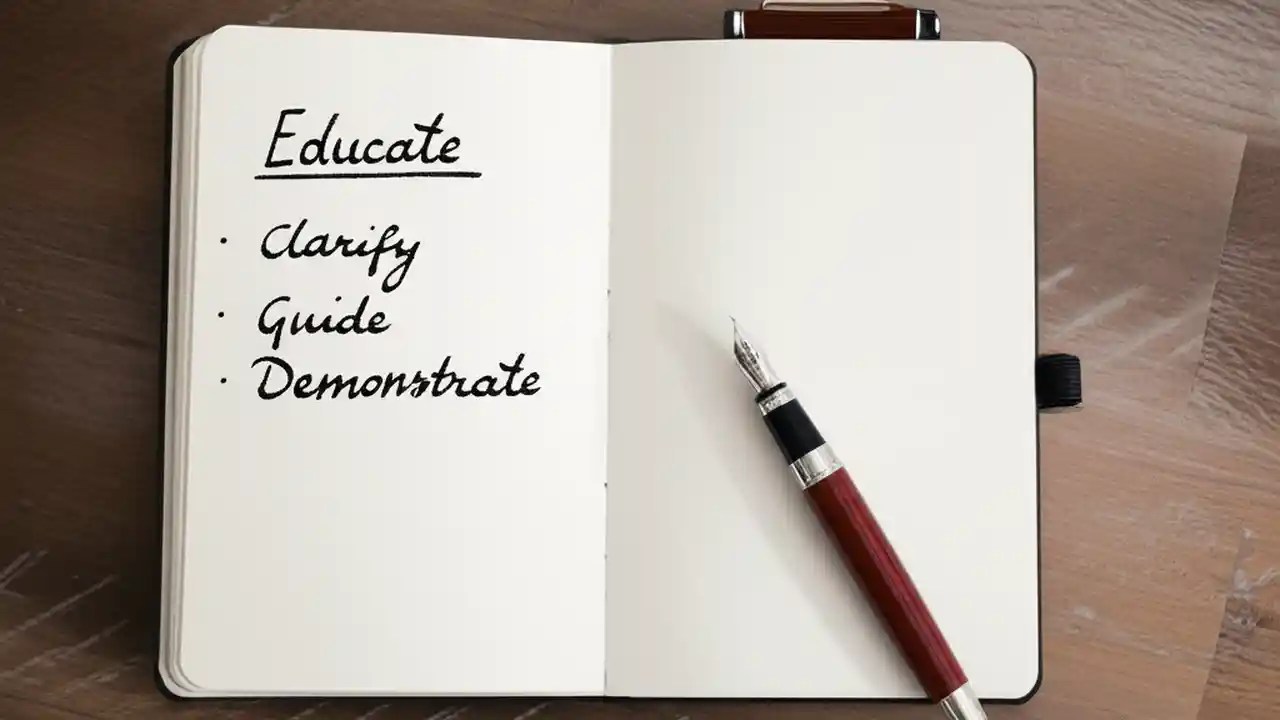 Educate
· Clarify
· Guide
· Demonstrate